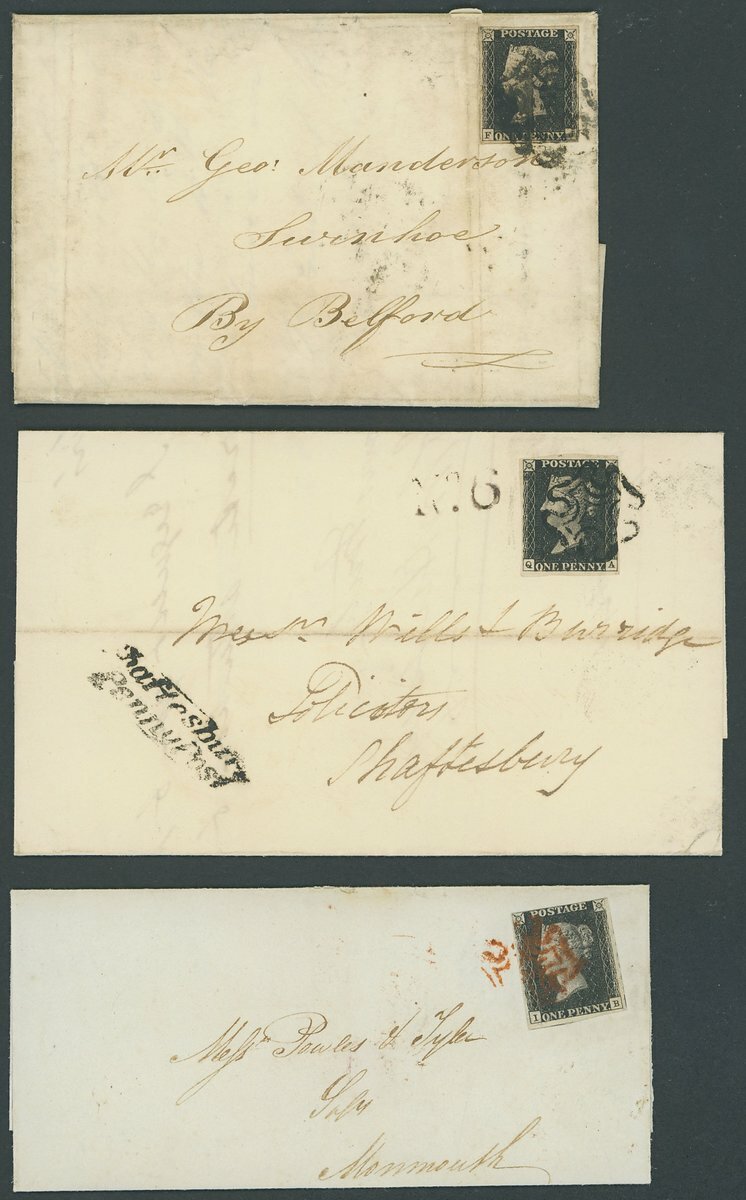 POSTAGE
F ONE PENNY
Mr. Geo: Manderson
Swinhoe
By Belford
No. 6
POSTAGE
Q ONE PENNY A
Messrs Wills & Burridge
Solicitors
Shaftesbury
Shaftesbury
Penny Post
POSTAGE
I ONE PENNY B
Messrs Powles & Tyler
Solrs
Monmouth